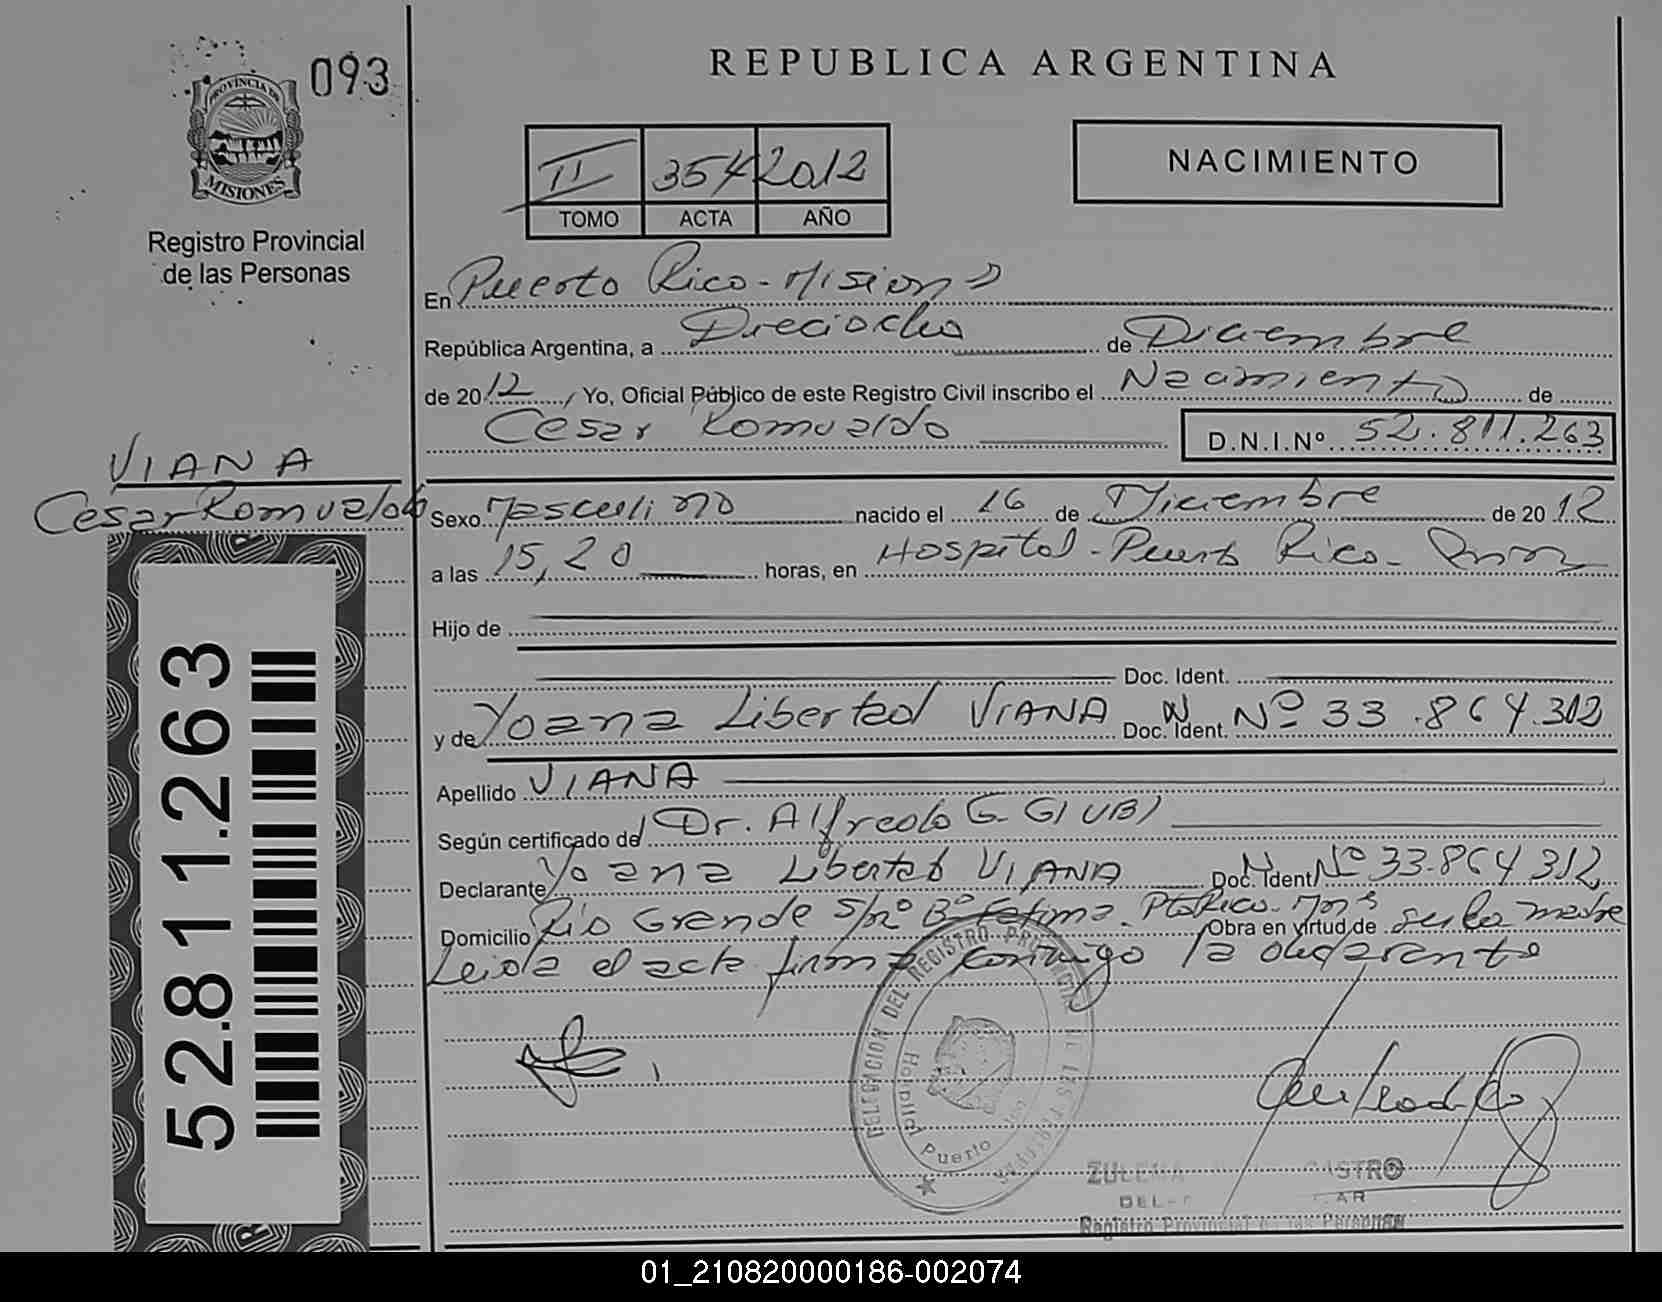 093
REPUBLICA ARGENTINA
PROVINCIA DE
MISIONES
Registro Provincial
de las Personas
II 354 2012
TOMO ACTA AÑO
NACIMIENTO
En Puerto Rico - Misiones
República Argentina, a Dieciocho de Diciembre
de 2012, Yo, Oficial Público de este Registro Civil inscribo el Nacimiento de
Cesar Romualdo D.N.I.Nº 52.811.263
VIANA
Cesar Romualdo
Sexo Masculino nacido el 16 de Diciembre de 2012
a las 15,20 horas, en Hospital - Puerto Rico -
Hijo de
Doc. Ident.
y de Yoana Libertad VIANA Doc. Ident. Nº 33.864.312
Apellido VIANA
Según certificado del Dr. Alfredo G. GIUBI
Declarante Yoana Libertad VIANA Doc. Ident Nº 33.864.312
Domicilio Río Grande S/nº Bº Fatima. Pto Rico. Mns Obra en virtud de ser la madre
Leida el acta firma conmigo la declarante
52.811.263
DELEGACION DEL REGISTRO PROVINCIAL DE LAS PERSONAS
Hospital Puerto Rico
ZULEMA CASTRO
Registro Provincial de las Personas
01_210820000186-002074